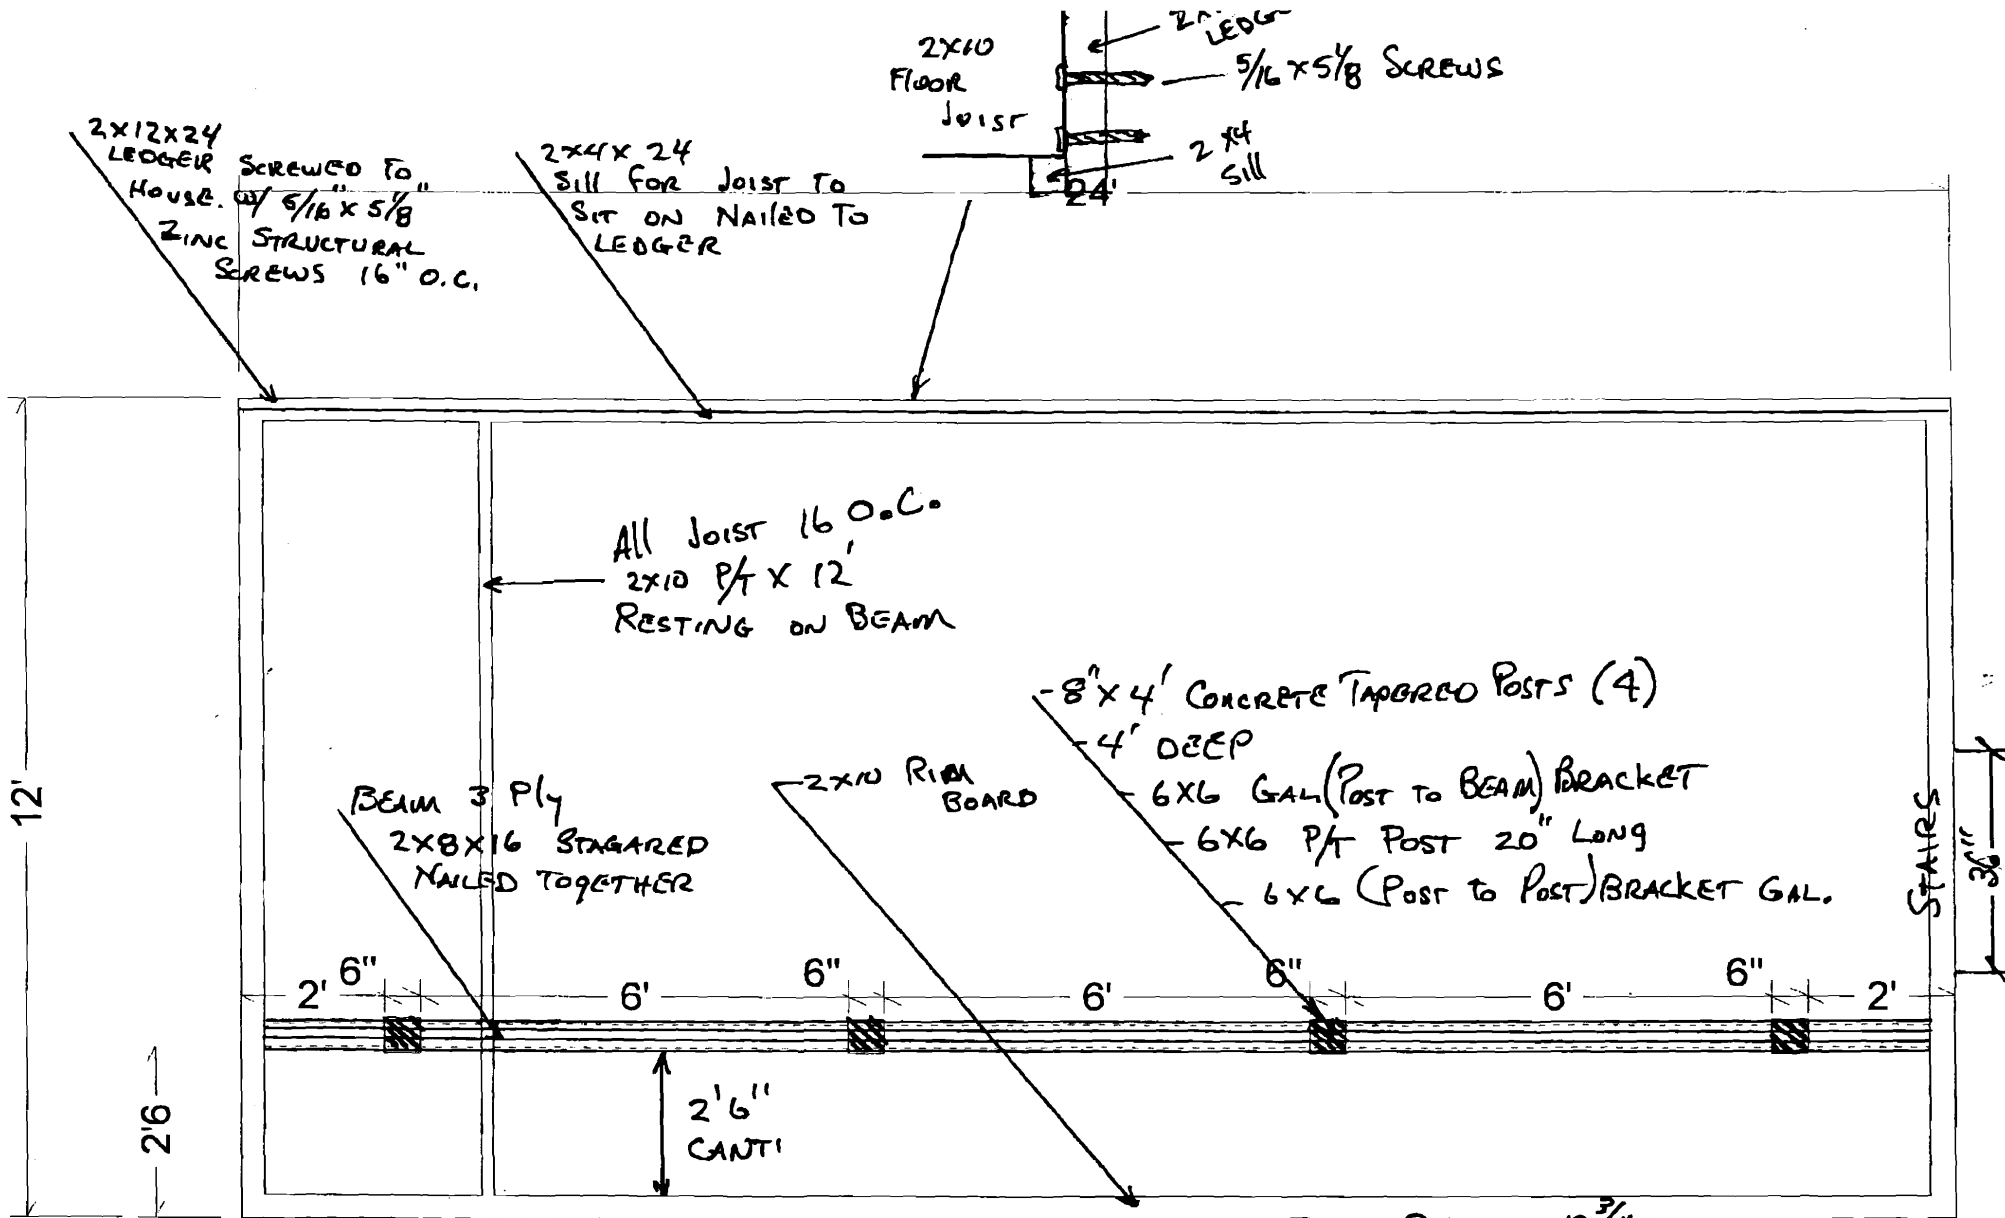 2X10
FLOOR
JOIST
LEDG
5/16 X 5 1/8 SCREWS
2 X4
Sill
24'
2X12X24
LEDGER SCREWED TO
HOUSE. W/ 5/16" X 5 1/8"
ZINC STRUCTURAL
SCREWS 16" O.C.
2X4X 24
Sill FOR JOIST TO
SIT ON NAILED TO
LEDGER
All JOIST 16 O.C.
2X10 P/T X 12'
RESTING ON BEAM
-8"X 4' CONCRETE TAPERED POSTS (4)
-4' DEEP
- 6X6 GAL (POST TO BEAM) BRACKET
- 6X6 P/T POST 20" LONG
- 6X6 (POST to POST) BRACKET GAL.
2X10 RIM
BOARD
BEAM 3 Ply
2X8X16 STAGARED
NAILED TOGETHER
12'
STAIRS
36"
2'
6"
6'
6"
6'
6"
6'
6"
2'
2'6
2'6"
CANTI